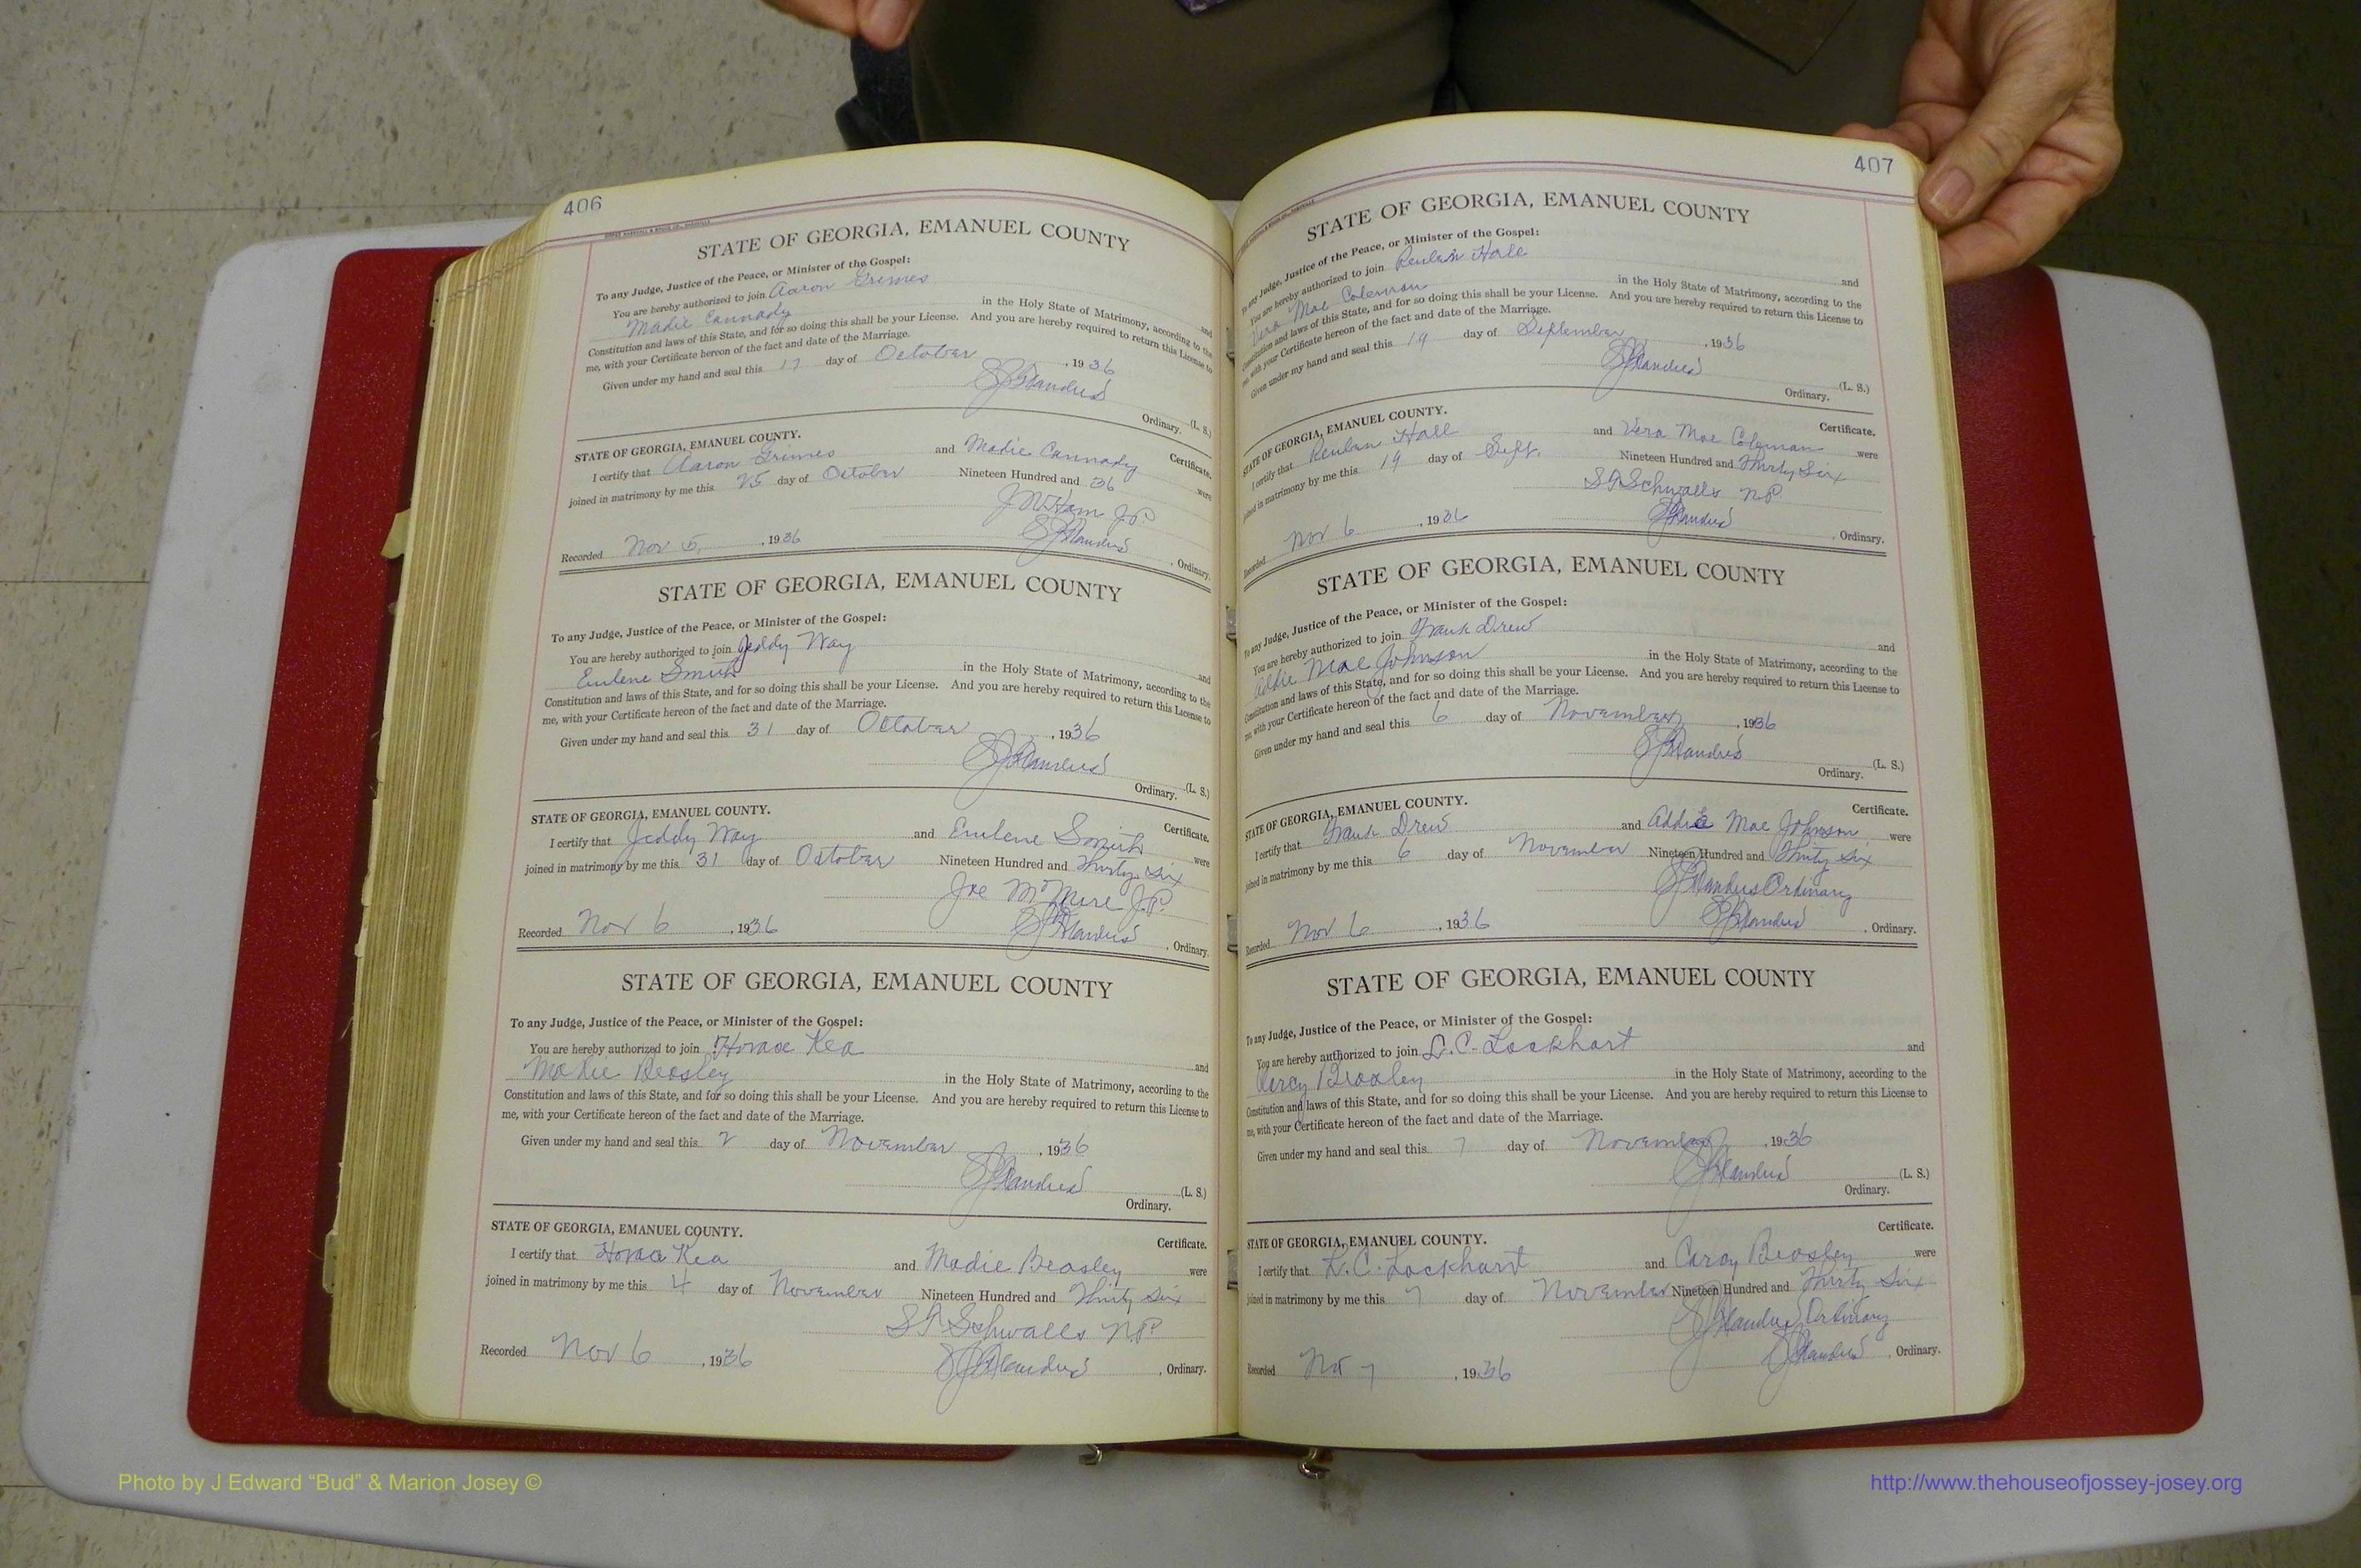 406
STATE OF GEORGIA, EMANUEL COUNTY
To any Judge, Justice of the Peace, or Minister of the Gospel:
You are hereby authorized to join Aaron Grimes and
Madie Cannady in the Holy State of Matrimony, according to the
Constitution and laws of this State, and for so doing this shall be your License. And you are hereby required to return this License to
me, with your Certificate hereon of the fact and date of the Marriage.
Given under my hand and seal this 17 day of October, 1936
(L. S.)
Ordinary.
STATE OF GEORGIA, EMANUEL COUNTY.
Certificate.
I certify that Aaron Grimes and Madie Cannady were
joined in matrimony by me this 25 day of October Nineteen Hundred and 36
J.P.
Recorded Nov 5, 1936 , Ordinary.
STATE OF GEORGIA, EMANUEL COUNTY
To any Judge, Justice of the Peace, or Minister of the Gospel:
You are hereby authorized to join Jeddy Way and
Eulene Smith in the Holy State of Matrimony, according to the
Constitution and laws of this State, and for so doing this shall be your License. And you are hereby required to return this License to
me, with your Certificate hereon of the fact and date of the Marriage.
Given under my hand and seal this 31 day of October, 1936
(L. S.)
Ordinary.
STATE OF GEORGIA, EMANUEL COUNTY.
Certificate.
I certify that Jeddy Way and Eulene Smith were
joined in matrimony by me this 31 day of October Nineteen Hundred and Thirty Six
Joe J.P.
Recorded Nov 6, 1936 , Ordinary.
STATE OF GEORGIA, EMANUEL COUNTY
To any Judge, Justice of the Peace, or Minister of the Gospel:
You are hereby authorized to join Horace Kea and
Madie Beasley in the Holy State of Matrimony, according to the
Constitution and laws of this State, and for so doing this shall be your License. And you are hereby required to return this License to
me, with your Certificate hereon of the fact and date of the Marriage.
Given under my hand and seal this 2 day of November, 1936
(L. S.)
Ordinary.
STATE OF GEORGIA, EMANUEL COUNTY.
Certificate.
I certify that Horace Kea and Madie Beasley were
joined in matrimony by me this 4 day of November Nineteen Hundred and Thirty Six
Schwalls N.P.
Recorded Nov 6, 1936 , Ordinary.
407
STATE OF GEORGIA, EMANUEL COUNTY
To any Judge, Justice of the Peace, or Minister of the Gospel:
You are hereby authorized to join Reuben Hall and
Vera Mae Coleman in the Holy State of Matrimony, according to the
Constitution and laws of this State, and for so doing this shall be your License. And you are hereby required to return this License to
me, with your Certificate hereon of the fact and date of the Marriage.
Given under my hand and seal this 19 day of September, 1936
(L. S.)
Ordinary.
STATE OF GEORGIA, EMANUEL COUNTY.
Certificate.
I certify that Reuben Hall and Vera Mae Coleman were
joined in matrimony by me this 19 day of Sept. Nineteen Hundred and Thirty Six
Schwalls N.P.
Recorded Nov 6, 1936 , Ordinary.
STATE OF GEORGIA, EMANUEL COUNTY
To any Judge, Justice of the Peace, or Minister of the Gospel:
You are hereby authorized to join Frank Drew and
Addie Mae Johnson in the Holy State of Matrimony, according to the
Constitution and laws of this State, and for so doing this shall be your License. And you are hereby required to return this License to
me, with your Certificate hereon of the fact and date of the Marriage.
Given under my hand and seal this 6 day of November, 1936
(L. S.)
Ordinary.
STATE OF GEORGIA, EMANUEL COUNTY.
Certificate.
I certify that Frank Drew and Addie Mae Johnson were
joined in matrimony by me this 6 day of November Nineteen Hundred and Thirty Six
Ordinary
Recorded Nov 6, 1936 , Ordinary.
STATE OF GEORGIA, EMANUEL COUNTY
To any Judge, Justice of the Peace, or Minister of the Gospel:
You are hereby authorized to join L.C. Lockhart and
Beasley in the Holy State of Matrimony, according to the
Constitution and laws of this State, and for so doing this shall be your License. And you are hereby required to return this License to
me, with your Certificate hereon of the fact and date of the Marriage.
Given under my hand and seal this 7 day of November, 1936
(L. S.)
Ordinary.
STATE OF GEORGIA, EMANUEL COUNTY.
Certificate.
I certify that L.C. Lockhart and Beasley were
joined in matrimony by me this 7 day of November Nineteen Hundred and Thirty Six
Ordinary
Recorded Nov 7, 1936 , Ordinary.
Photo by J Edward “Bud” & Marion Josey ©
http://www.thehouseofjossey-josey.org